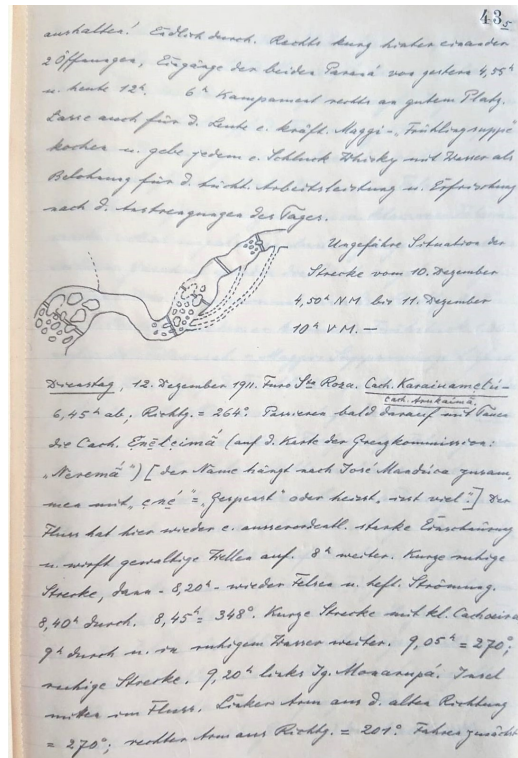 43₅
aushalten! Endlich durch. Rechts kurz hinter einander
2 Öffnungen, Eingänge der beiden Paraná von gestern 4,55ʰ
u. heute 12ʰ. 6ʰ Kampament rechts an gutem Platz.
Lasse auch für d. Leute e. kräft. Maggi-„Frühlingsuppe"
kochen u. gebe jedem e. Schluck Whisky mit Wasser als
Belohnung für d. tücht. Arbeitsleistung u. Erfrischung
nach d. Anstrengungen des Tages.
Ungefähre Situation der
Strecke vom 10. Dezember
4,50ʰ N.M. bis 11. Dezember
10ʰ V.M. —
Dienstag, 12. Dezember 1911. Furo Sta Roza. Cach. Karainametú-
cach. Arukaimá.
6,45ʰ ab; Richtg. = 264°. Passieren bald darauf mit Tauen
die Cach. (auf d. Karte der Grenzkommission:
„Neremá") [der Name hängt nach José Mandúca zusam-
men mit „ené" = „gespeist" oder heisst, isst viel".] Der
Fluss hat hier wieder e. ausserordentl. starke Einschnürung
u. wirft gewaltige Wellen auf. 8ʰ weiter. Kurze ruhige
Strecke, dann - 8,20ʰ - wieder Felsen u. heft. Strömung.
8,40ʰ durch. 8,45ʰ = 348°. Kurze Strecke mit kl. Cachoeira
9ʰ durch u. in ruhigem Wasser weiter. 9,05ʰ = 270°;
ruhige Strecke. 9,20ʰ links Ig. Insel
mitten im Fluss. Linker Arm aus d. alten Richtung
= 270°; rechter Arm aus Richtg. = 201°. Fahren zunächst